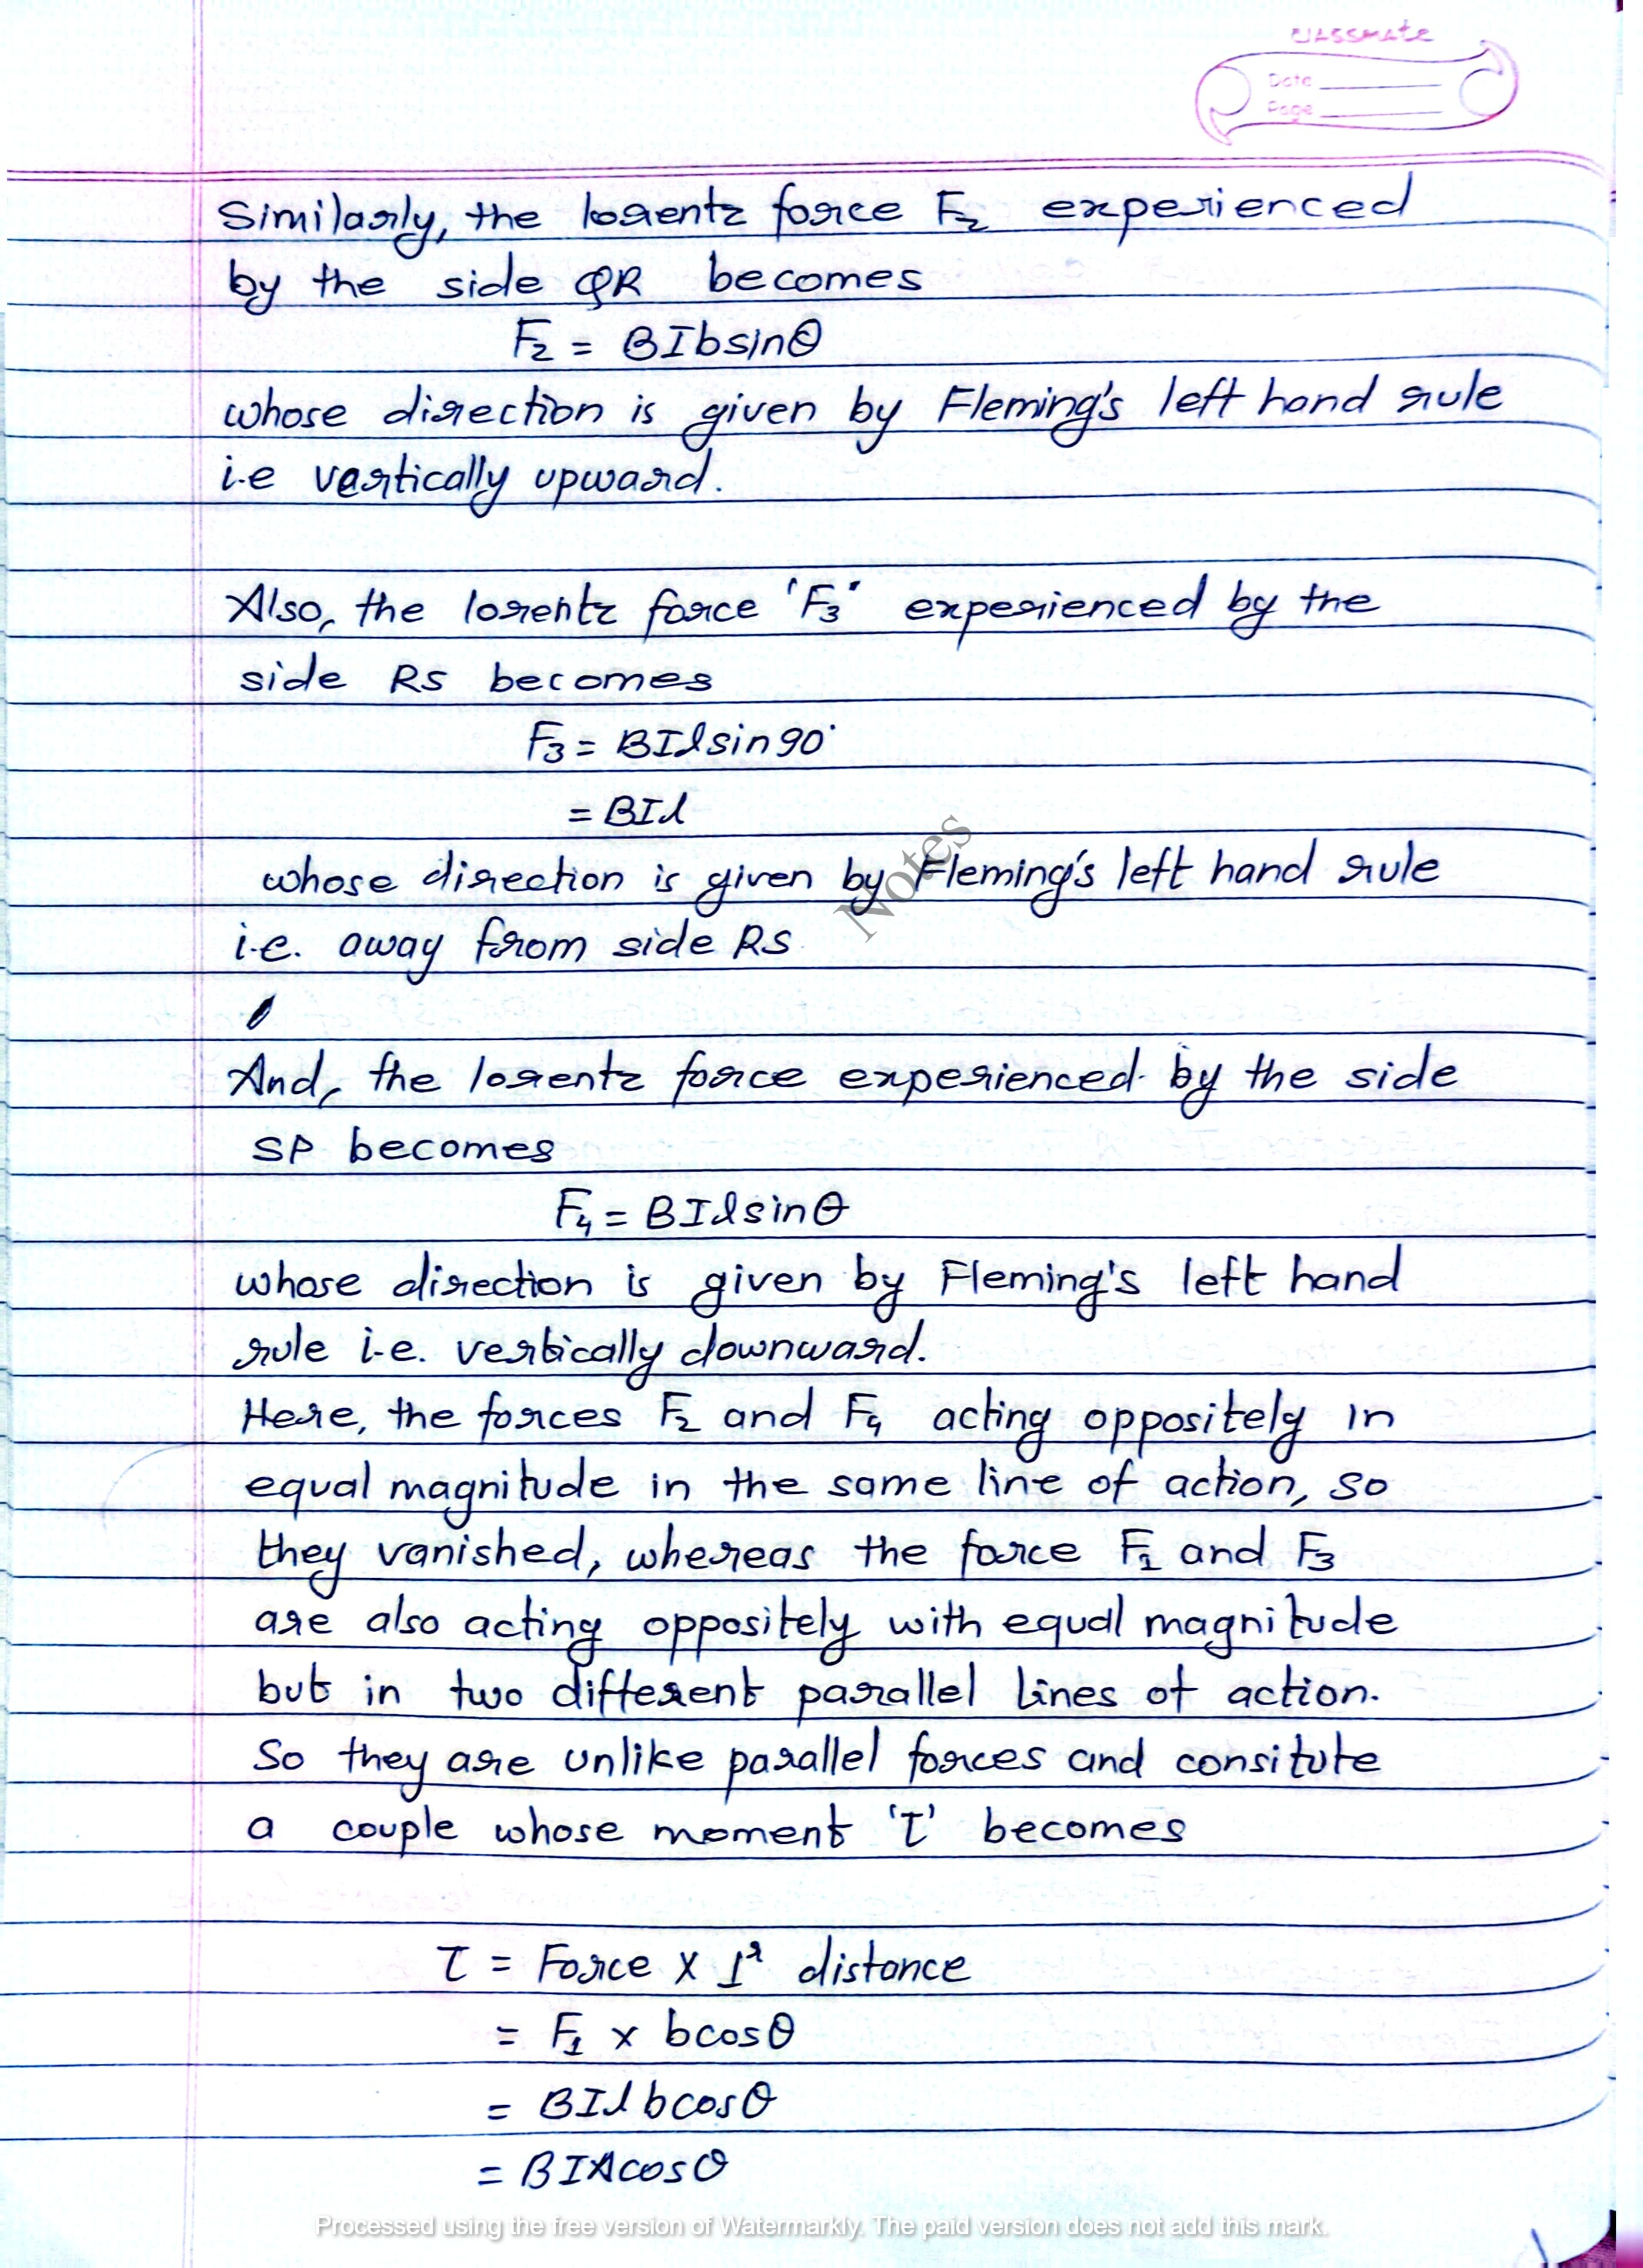 classmate
Date
Page
Similarly, the lorentz force F₂ experienced
by the side QR becomes
F₂ = BIbsinθ
whose direction is given by Fleming's left hand rule
i.e vertically upward.
Also, the lorentz force 'F₃' experienced by the
side RS becomes
F₃ = BIlsin90°
= BIl
whose direction is given by Fleming's left hand rule
i.e. away from side RS
Notes
And, the lorentz force experienced by the side
SP becomes
F₄ = BIlsinθ
whose direction is given by Fleming's left hand
rule i.e. vertically downward.
Here, the forces F₂ and F₄ acting oppositely in
equal magnitude in the same line of action, so
they vanished, whereas the force F₁ and F₃
are also acting oppositely with equal magnitude
but in two different parallel lines of action.
So they are unlike parallel forces and consitute
a couple whose moment 'τ' becomes
τ = Force × ⊥ʳ distance
= F₁ × bcosθ
= BIlbcosθ
= BIAcosθ
Processed using the free version of Watermarkly. The paid version does not add this mark.